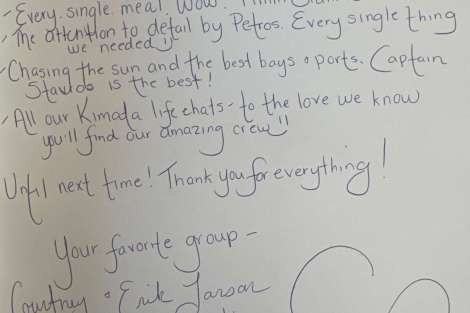 - Every. single. meal. Wow!
- The attention to detail by Petros. Every single thing
we needed!!
- Chasing the sun and the best bays & ports. Captain
is the best!
- All our Kimata life chats - to the love we know
you'll find our amazing crew!!
Until next time! Thank you for everything!
Your favorite group -
Courtney & Erik Larson